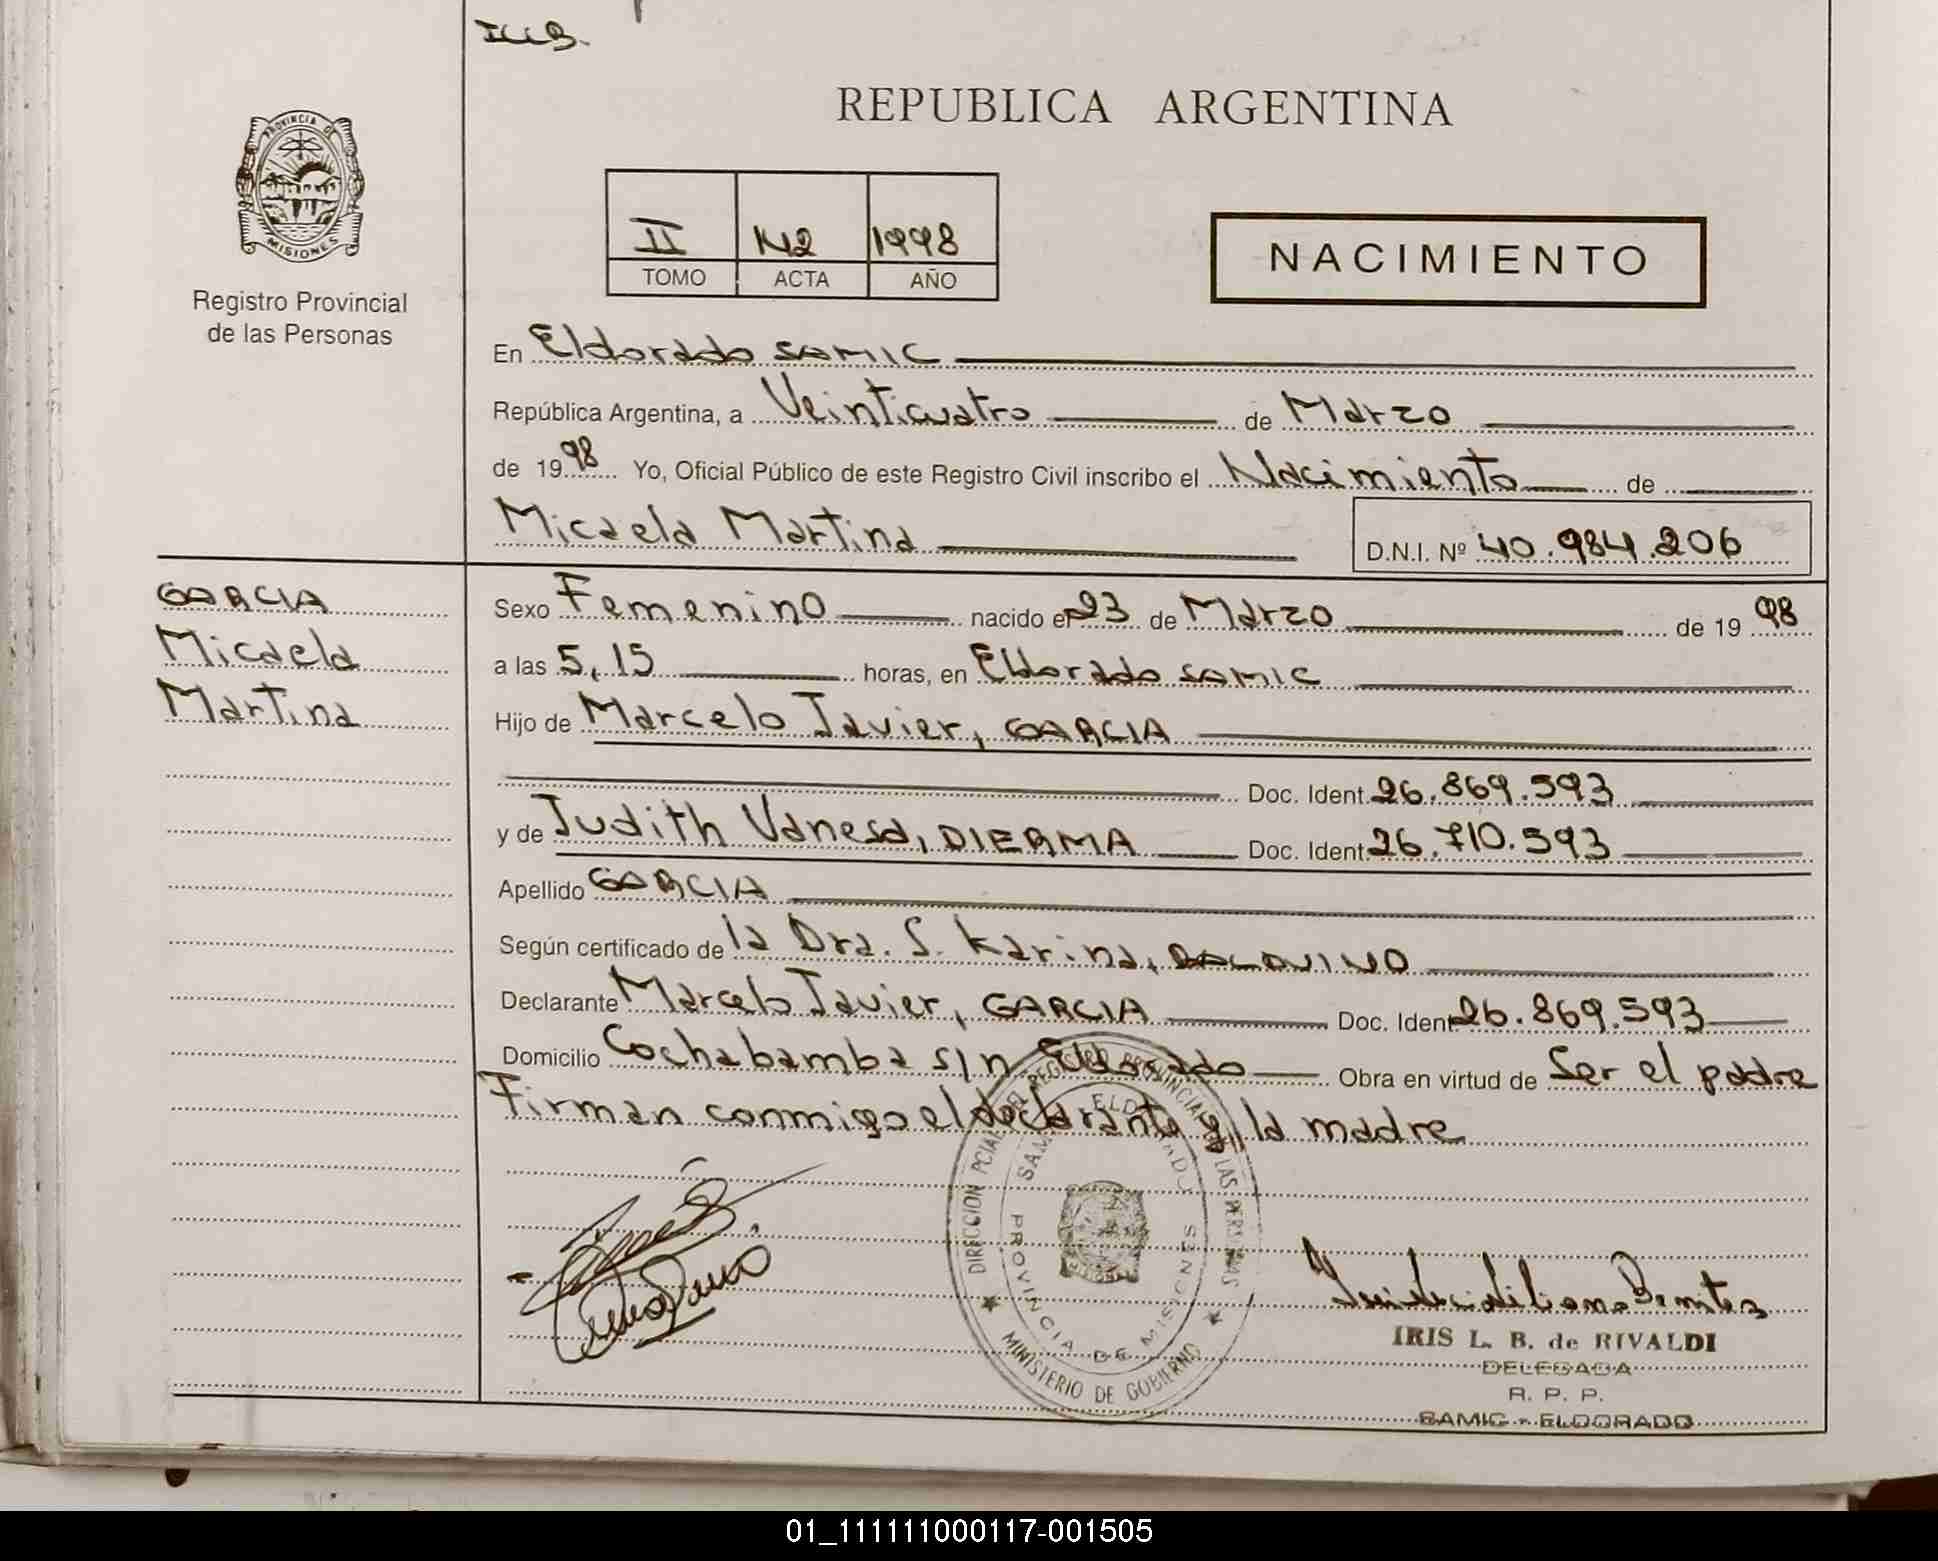 REPUBLICA ARGENTINA
PROVINCIA DE MISIONES
Registro Provincial
de las Personas
II 142 1998
TOMO ACTA AÑO
NACIMIENTO
En Eldorado SAMIC
República Argentina, a Veinticuatro de Marzo
de 1998 Yo, Oficial Público de este Registro Civil inscribo el Nacimiento de
Micaela Martina D.N.I. Nº 40.984.206
GARCIA
Micaela
Martina
Sexo Femenino nacido el 23 de Marzo de 1998
a las 5,15 horas, en Eldorado SAMIC
Hijo de Marcelo Javier, GARCIA
Doc. Ident. 26.869.593
y de Judith Vanesa, DIERMA Doc. Ident. 26.710.593
Apellido GARCIA
Según certificado de la Dra. S. Karina,
Declarante Marcelo Javier, GARCIA Doc. Ident 26.869.593
Domicilio Cochabamba s/n Eldorado Obra en virtud de Ser el padre
Firman conmigo el declarante y la madre
DIRECCION PCIAL DEL REGISTRO PROVINCIAL DE LAS PERSONAS
MINISTERIO DE GOBIERNO
ELDORADO
PROVINCIA DE MISIONES
IRIS L. B. de RIVALDI
DELEGADA
R. P. P.
SAMIC - ELDORADO
01_111111000117-001505